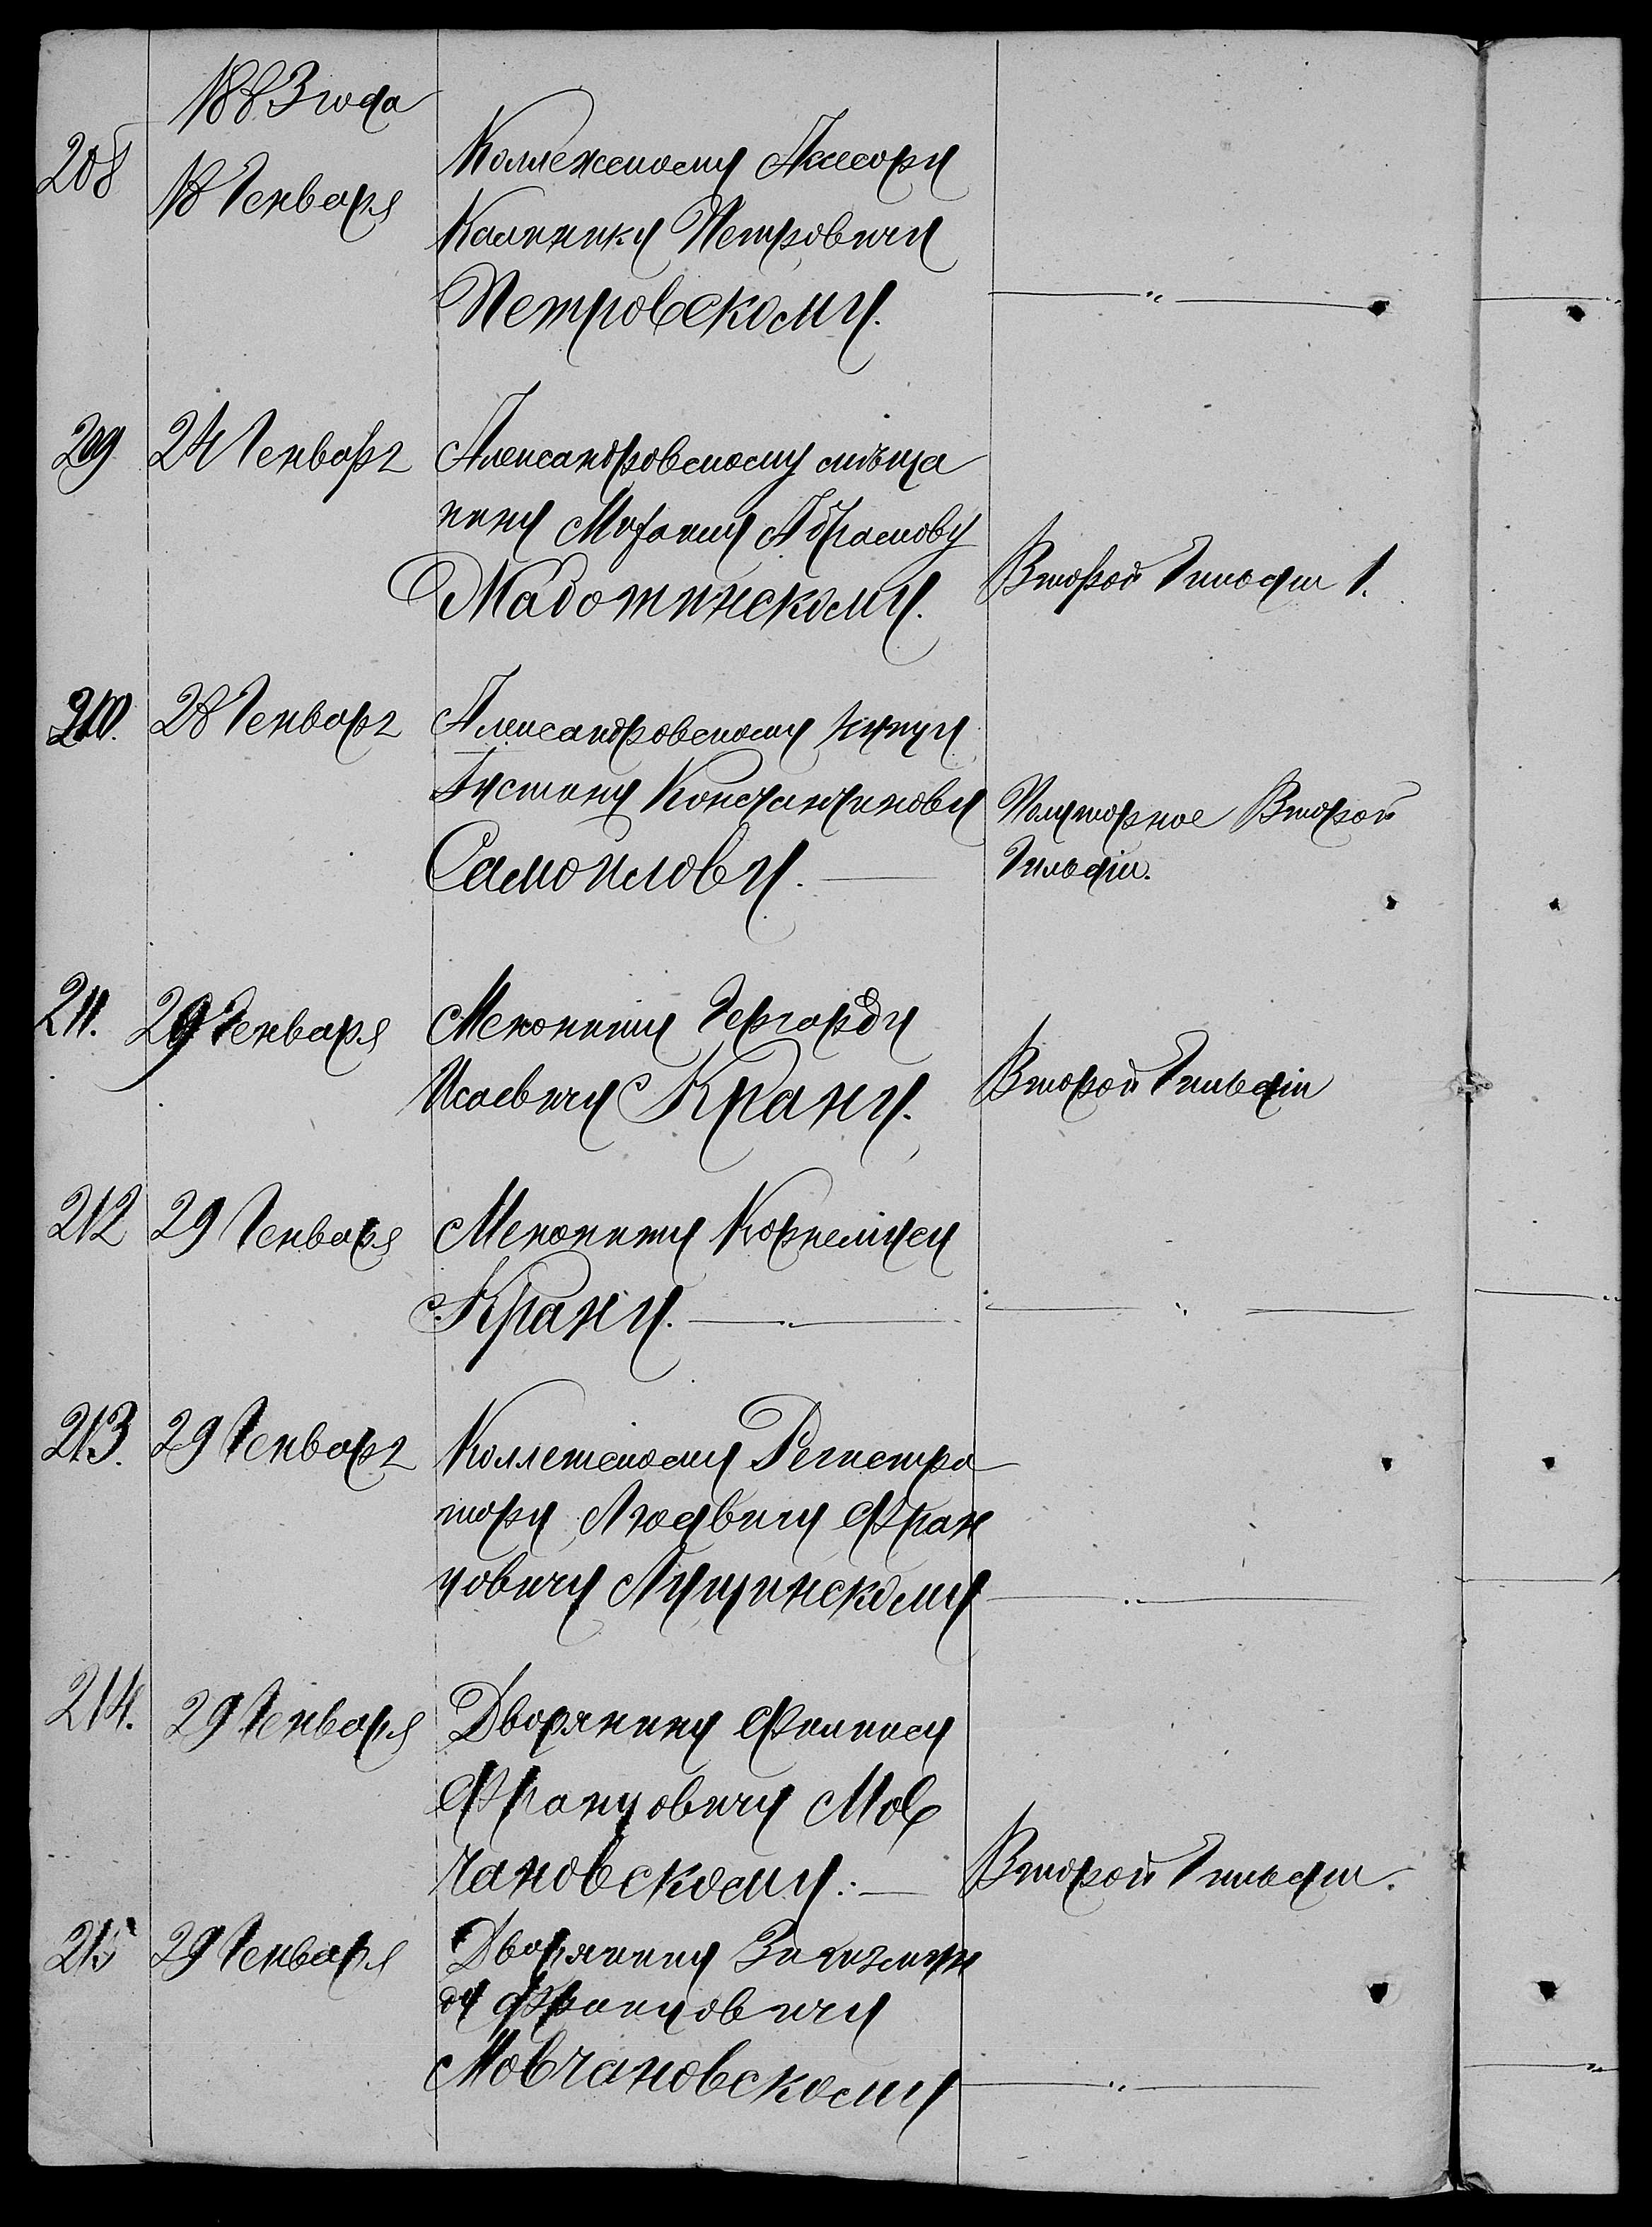 1883 года
208
18 Генваря
Коллежскому Ассесору
Калинику Петровичу
Петровскому.
209
24 Генваря
Александровскому мѣща
нину Абрамову
Мадотинскому.
Второй Гильдіи 1.
210.
28 Генваря
Александровскому купцу
Густаву Константинову
Самойлову.
Полуторное Второй
Гильдіи.
211.
29 Генваря
Менониту Гергарду
Исаевичу Крану.
Второй Гильдіи
212
29 Генваря
Менониту Корнеліусу
Крану.
213.
29 Генваря
Коллежскому Регистра
тору Людвигу Фран
цовичу Лущинскому
214.
29 Генваря
Дворянину Филипу
Францовичу Мов
чановскому:
Второй Гильдіи.
215
29 Генваря
Дворянину
ду Францовичу
Мовчановскому